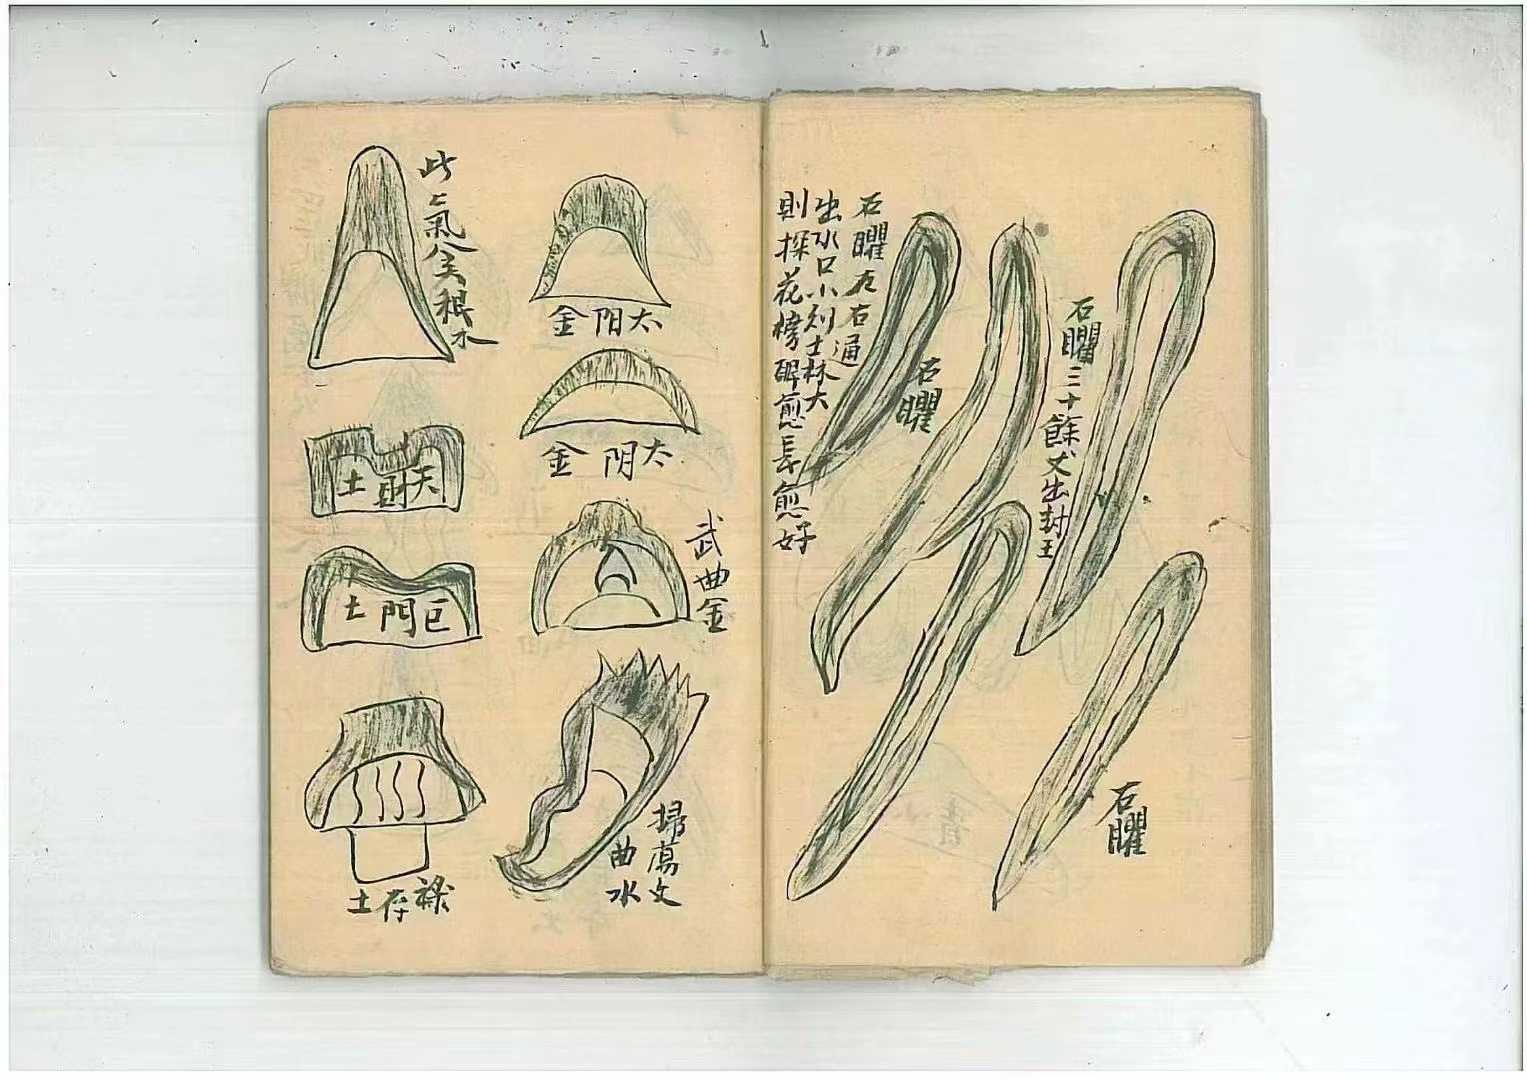 石曜左右通
出水口小則士林大
則探花榜眼愈長愈好
石曜
石曜三十餘丈出封王
石曜
太阳金
太阴金
武曲金
掃蕩文
曲水
此
氣
木
天財土
巨門土
祿存土